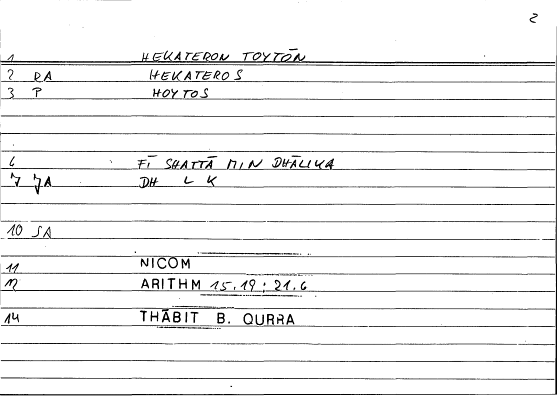 2
1 HEKATERON TOYTŌN
2 RA HEKATEROS
3 P HOYTOS
6 FĪ SHATTĀ MIN DHĀLIKA
7 JA DH L K
10 SA
11 NICOM
12 ARITHM 15.19 : 21.6
14 THĀBIT B. QURRA